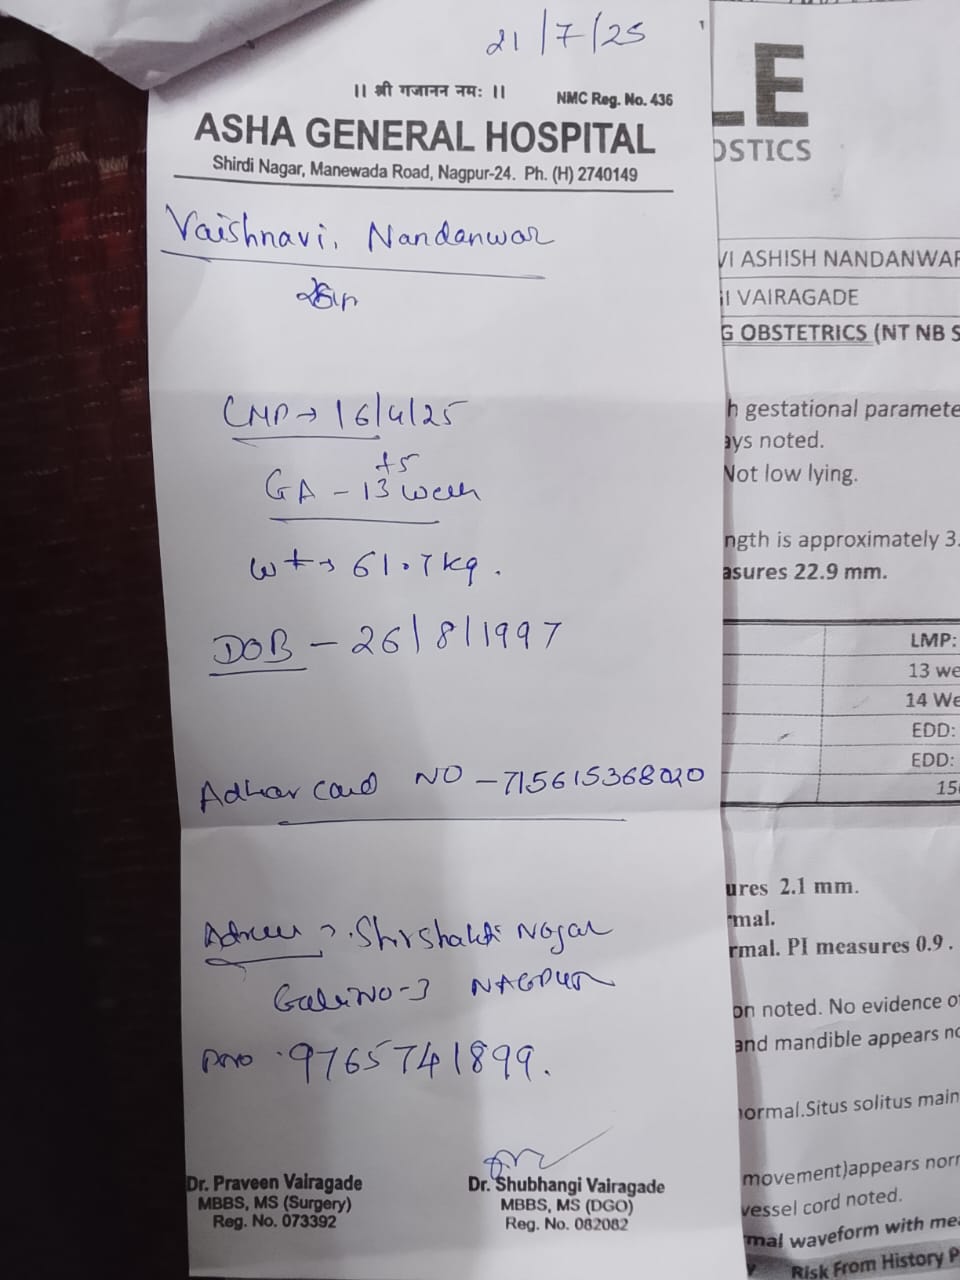 21/7/25
|| श्री गजानन नमः ||
NMC Reg. No. 436
ASHA GENERAL HOSPITAL
Shirdi Nagar, Manewada Road, Nagpur-24. Ph. (H) 2740149
Vaishnavi. Nandanwar
LMP → 16/4/25
GA - 13 +5 week
wt → 61.7 kg.
DOB - 26/8/1997
Adhar Card NO - 715615368020
Adress → Shivshakti Nagar
Gali NO-3 NAGPUR
9765741899.
Dr. Praveen Vairagade
MBBS, MS (Surgery)
Reg. No. 073392
Dr. Shubhangi Vairagade
MBBS, MS (DGO)
Reg. No. 082082
LE
OSTICS
VI ASHISH NANDANWAR
I VAIRAGADE
G OBSTETRICS (NT NB S
h gestational paramete
ays noted.
Not low lying.
ngth is approximately 3.
asures 22.9 mm.
LMP:
13 we
14 We
EDD:
EDD:
15
ures 2.1 mm.
rmal.
rmal. PI measures 0.9 .
on noted. No evidence o
and mandible appears no
normal.Situs solitus main
movement)appears norr
vessel cord noted.
mal waveform with mea
Risk From History P